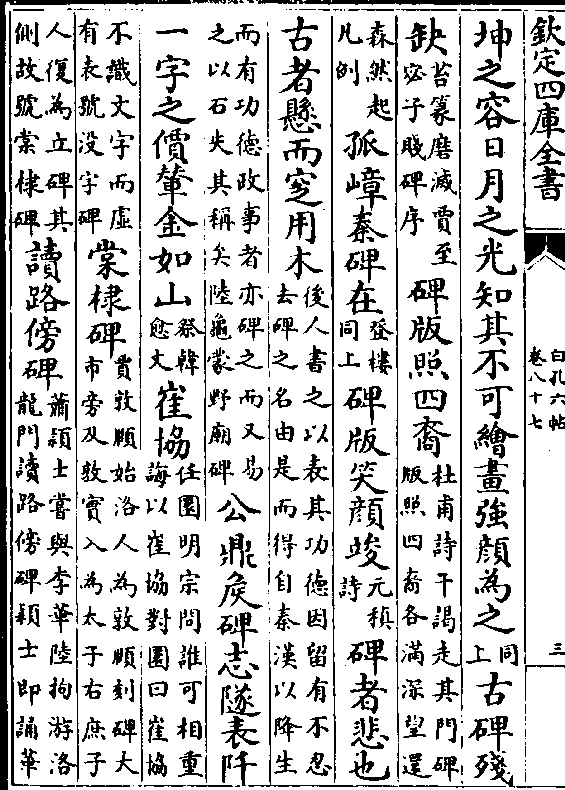 欽定四庫全書
白孔六帖
卷八十七
三
坤之容日月之光知其不可繪畫強顔為之同上古碑殘
缺苔篆磨滅賈至宓子賤碑序碑版照四裔杜甫詩干謁走其門碑版照四裔各滿深望還
森然起凡例孤嶂秦碑在登樓同上碑版笑顔竣元稹詩碑者悲也
古者懸而窆用木後人書之以表其功德因留有不忍去碑之名由是而得自秦漢以降生
而有功德政事者亦碑之而又易之以石失其稱矣陸龜蒙野廟碑公鼎侯碑志隧表阡
一字之價輦金如山祭韓愈文崔協任圜明宗問誰可相重誨以崔協對圜曰崔協
不識文字而虛有表號没字碑棠棣碑賈敦頤始洛人為敦頤刻碑大市旁及敦實入為太子右庶子
人復為立碑其側故號棠棣碑讀路傍碑蕭頴士嘗與李華陸拘游洛龍門讀路傍碑頴士即誦華